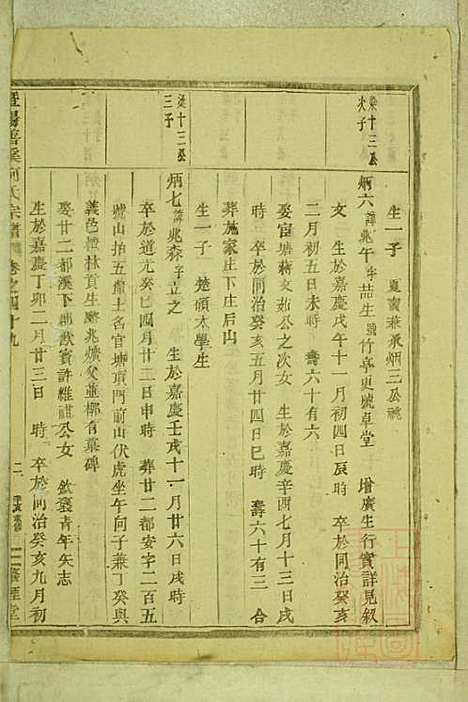 生一子 夏寅兼承炳三公祧
梁十三公次子
炳六 諱兆午 字喆生 號竹亭更號卓堂 增廣生行實詳見叙
文 生於嘉慶戊午十一月初四日辰時 卒於同治癸亥
二月初五日未時 壽六十有六
娶宦塘蔣文茹公之次女 生於嘉慶辛酉七月十三日戌
時 卒於同治癸亥五月廿四日巳時 壽六十有三 合
葬施家庄下庄后山
生一子 楚頎太學生
梁十三公三子
炳七 諱兆森 字立之 生於嘉慶壬戌十一月廿六日戌時
卒於道光癸巳四月廿二日申時 葬廿二都安字二百五
號山拍五鼎土名官塘項門前山伏虎坐午向子兼丁癸與
義邑檀林貢生 兆 父並槨有墓碑
娶廿二都溪下地歐賓許維紺公女 欽褒青年矢志
生於嘉慶丁卯二月廿三日 時 卒於同治癸亥九月初
暨陽 溪何氏宗譜 卷之四十九 二